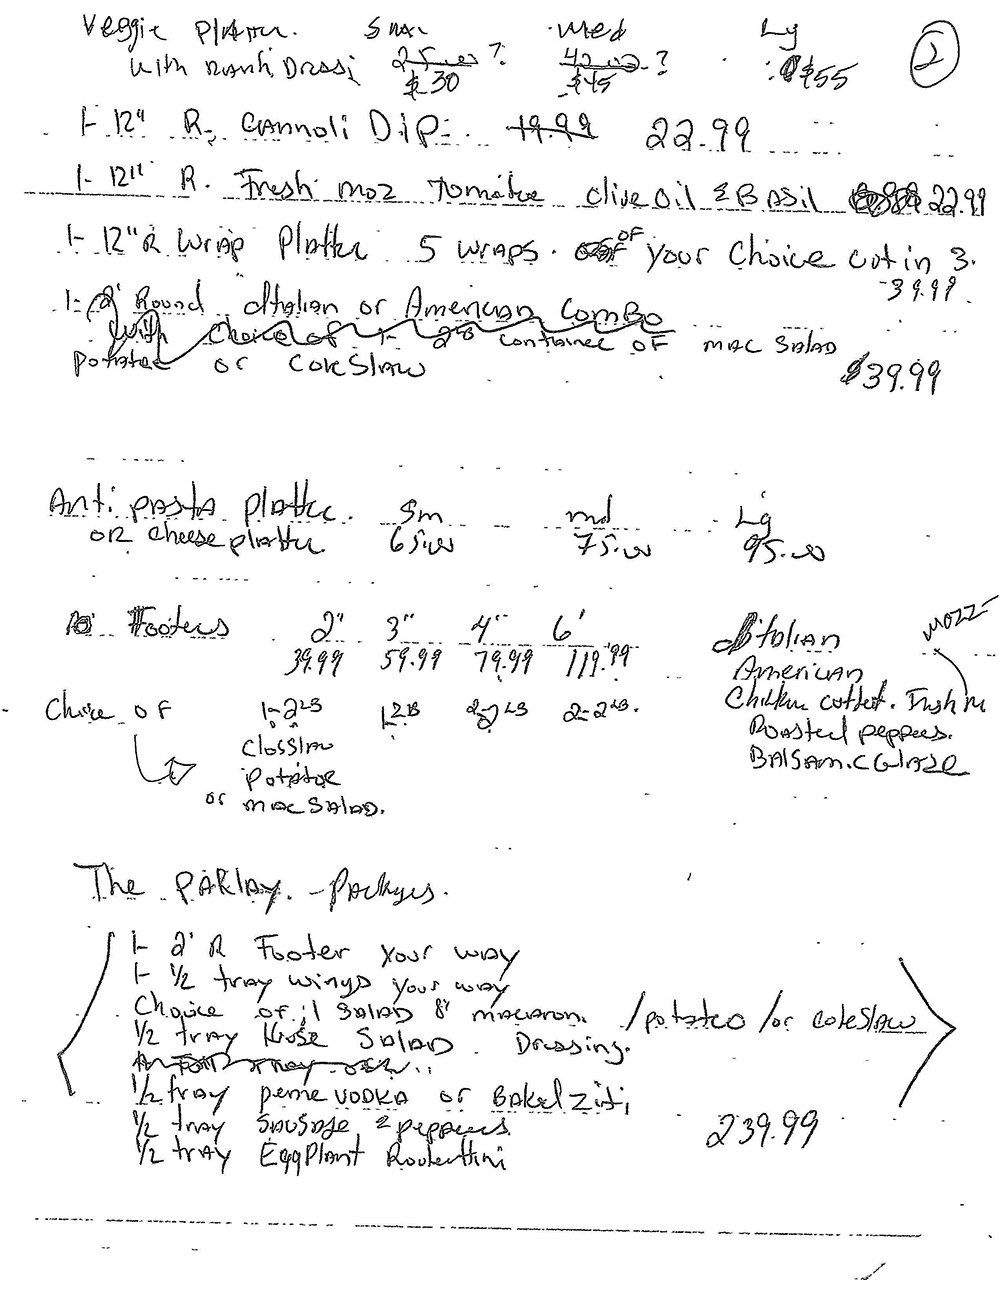 Veggie Platter. Sma. Med Lg 2
with Ranh Dressi 25.00 ? 42.00 ? $55
$30 $45
1- 12" R. CANNOLI DIP. 19.99 22.99
1- 12" R. Fresh moz Tomatoe Olive Oil & BASIL 22.99
1- 12" R Wrap Platter 5 wraps. OF your Choice cut in 3.
39.99.
1- 2' Round Italian or American Combo
with Choice of 1- 2LB container OF mac Salad
potatoe or ColeSlaw $39.99
Anti pasta Platter. Sm md Lg
OR cheese platter 65.00 75.00 95.00
Footers 2" 3" 4" 6' Italian mozz
39.99 59.99 79.99 119.99 American
Choice OF 1-2LB 1-2LB 2-2LB 2-2LB. Chicken cutlet. Fresh m
Closslaw Roasted peppers.
potatoe BALSAMIC Glaze
or mac Salad.
The PARlay. - Packges.
1- 2' R Footer Your way
1- 1/2 tray wings your way
Choice of 1 Salad 8" macaroni /potatoo /or coleslaw
1/2 tray House Salad. Dressing.
1/2 tray penne VODKA or Baked Ziti
1/2 tray Sausage & peppers. 239.99
1/2 tray EggPlant Roulettini